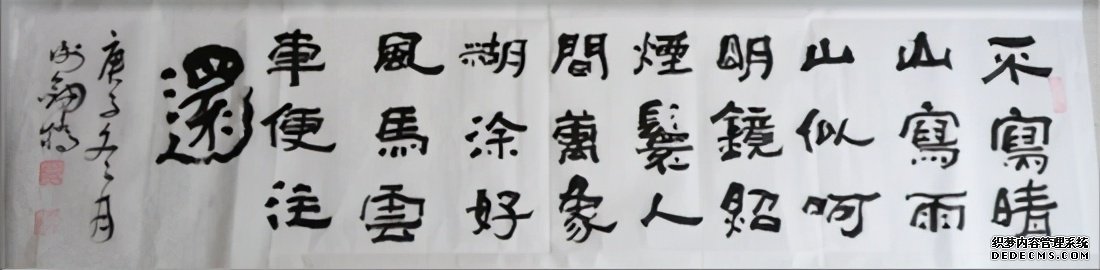 不寫晴
山寫雨
山似呵
明鏡照
煙鬟人
間萬象
糊涂好
風馬雲
車便往
還
庚子冬月
织梦内容管理系统
DEDECMS.COM